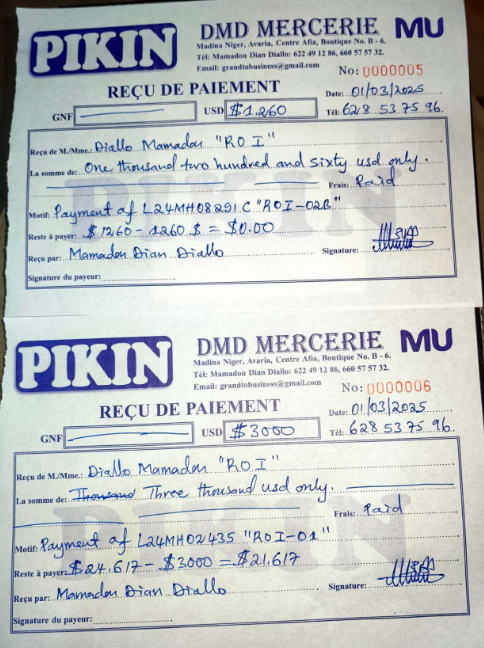 PIKIN
DMD MERCERIE MU
Madina Niger, Avaria, Centre Afia, Boutique No. B - 6.
Tél: Mamadou Dian Diallo: 622 49 12 86, 660 57 57 32.
Email: grandtobusiness@gmail.com
No: 0000005
REÇU DE PAIEMENT
Date: 01/03/2025
GNF USD $1,260 Tél: 628 53 75 96.
Reçu de M./Mme.: Diallo Mamadou "ROI"
La somme de: One thousand two hundred and Sixty usd only.
Frais: Paid
Motif: Payment of L24MH08291 C "ROI-02B"
Reste à payer: $1260 - 1260 $ = $0.00
Reçu par: Mamadou Dian Diallo Signature:
Signature du payeur:
PIKIN
DMD MERCERIE MU
Madina Niger, Avaria, Centre Afia, Boutique No. B - 6.
Tél: Mamadou Dian Diallo: 622 49 12 86, 660 57 57 32.
Email: grandtobusiness@gmail.com
No: 0000006
REÇU DE PAIEMENT
Date: 01/03/2025
GNF USD $3000 Tél: 628 53 75 96.
Reçu de M./Mme.: Diallo Mamadou "ROI"
La somme de: Thousand Three thousand usd only.
Frais: Paid
Motif: Payment of L24MH02435 "ROI-01"
Reste à payer: $24,617 - $3000 = $21,617
Reçu par: Mamadou Dian Diallo Signature:
Signature du payeur: